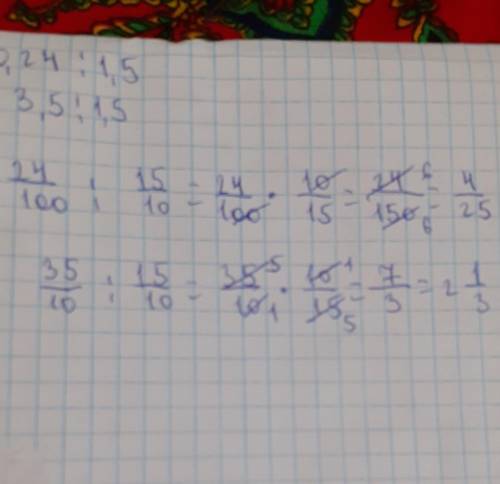 0,24 : 1,5
3,5 : 1,5
24/100 : 15/10 = 24/100 · 10/15 = 24/150 6 6 = 4/25
35/10 : 15/10 = 35/10 5 1 · 10/15 1 5 = 7/3 = 2 1/3